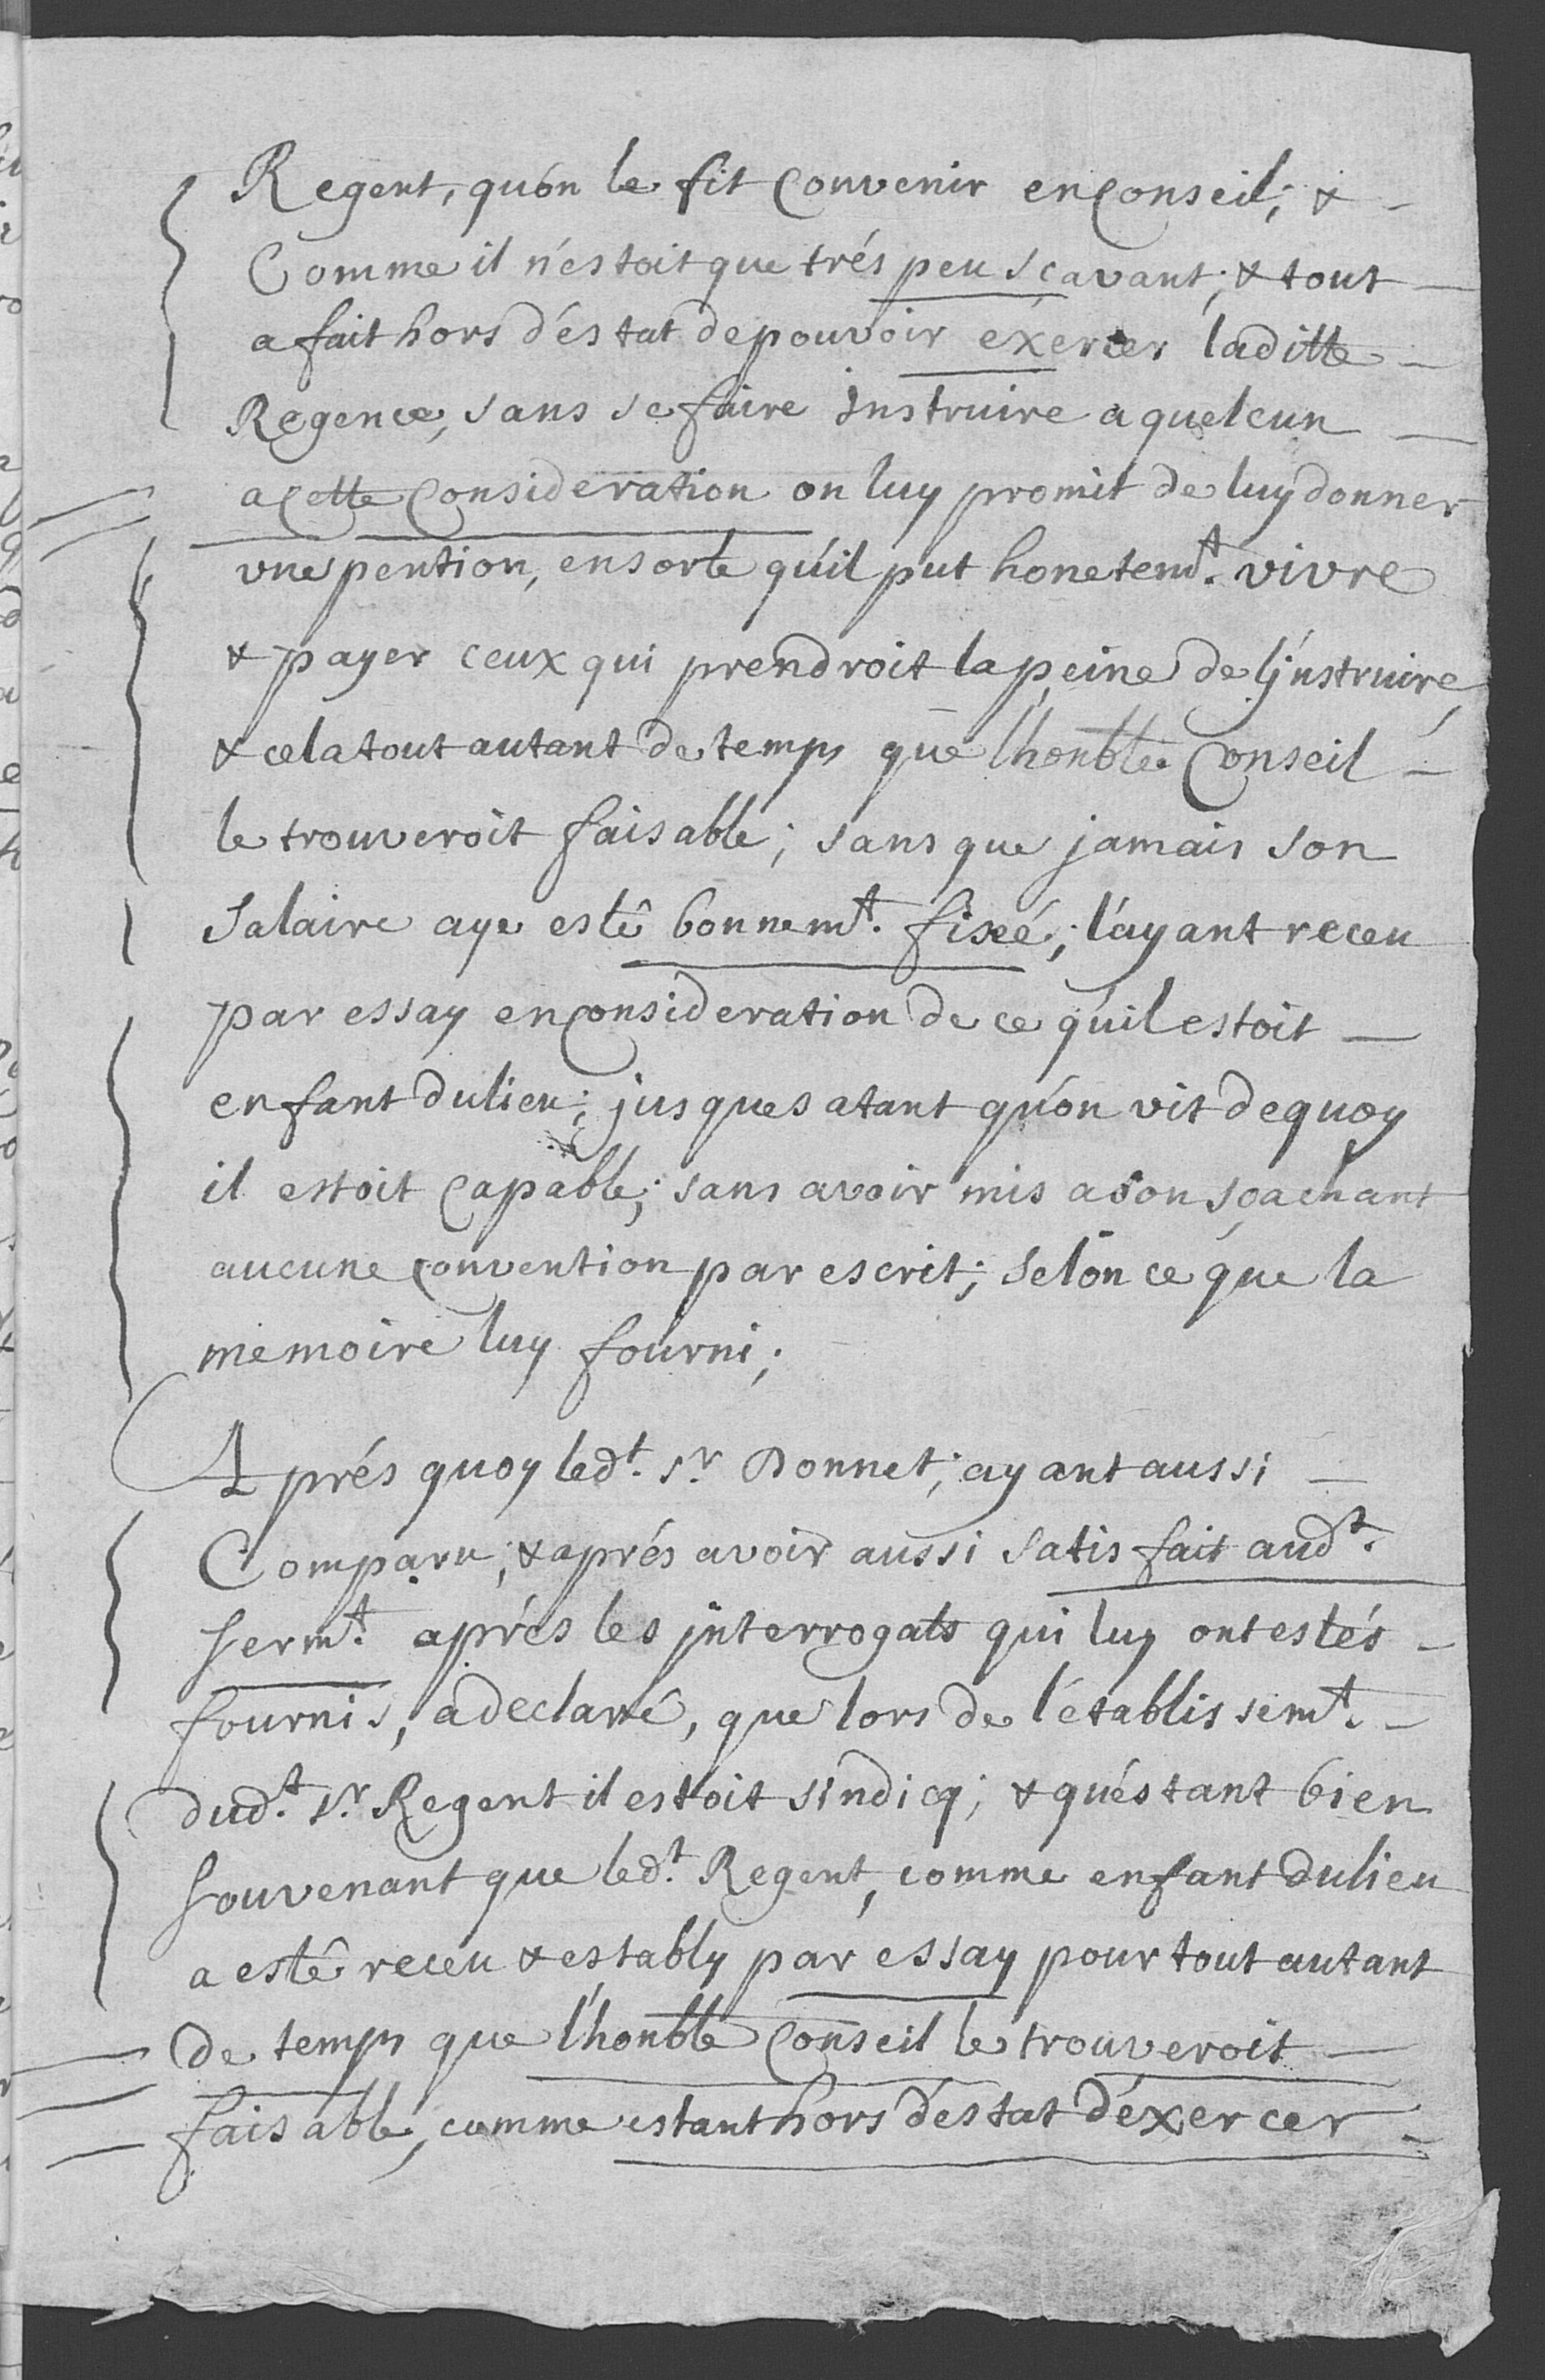 Regent, qu'on le fit Convenir en Conseil; &
Comme il n'estoit que trés peu sçavant; & tout
a fait hors d'éstat de pouvoir exercer laditte
Regence, sans se faire Instruire a quelcun
a Cette Consideration on luy promit de luy donner
vne pention, ensorte qu'il put honetemt. vivre
& payer ceux qui prendroit la peine de l'jnstruire,
& cela tout autant de temps que l'honble. Conseil
le trouveroit faisable; sans que jamais son
Salaire aye esté bonnemt. fixeé; l'ayant receu
par essay en Consideration de ce qu'il estoit
enfant du lieu; jusques a tant qu'on vit de quoy
il estoit Capable; sans avoir mis a son sçachant
aucune Convention par escrit; selon ce que la
memoire luy fourni;
Aprés quoy ledt. sr. Donnet; ayant aussi
Comparu; & aprés avoir aussi satisfait audt.
sermt. aprés les jnterrogats qui luy ont estés
fournis, a declaré, que lors de l'établissemt.
dudt. sr. Regent il estoit sindicq; & qu'éstant bien
souvenant que ledt. Regent, comme enfant du lieu
a esté receu & estably par essay pour tout autant
de temps que l'honble Conseil le trouveroit
faisable, comme estant hors d'éstat d'éxercer